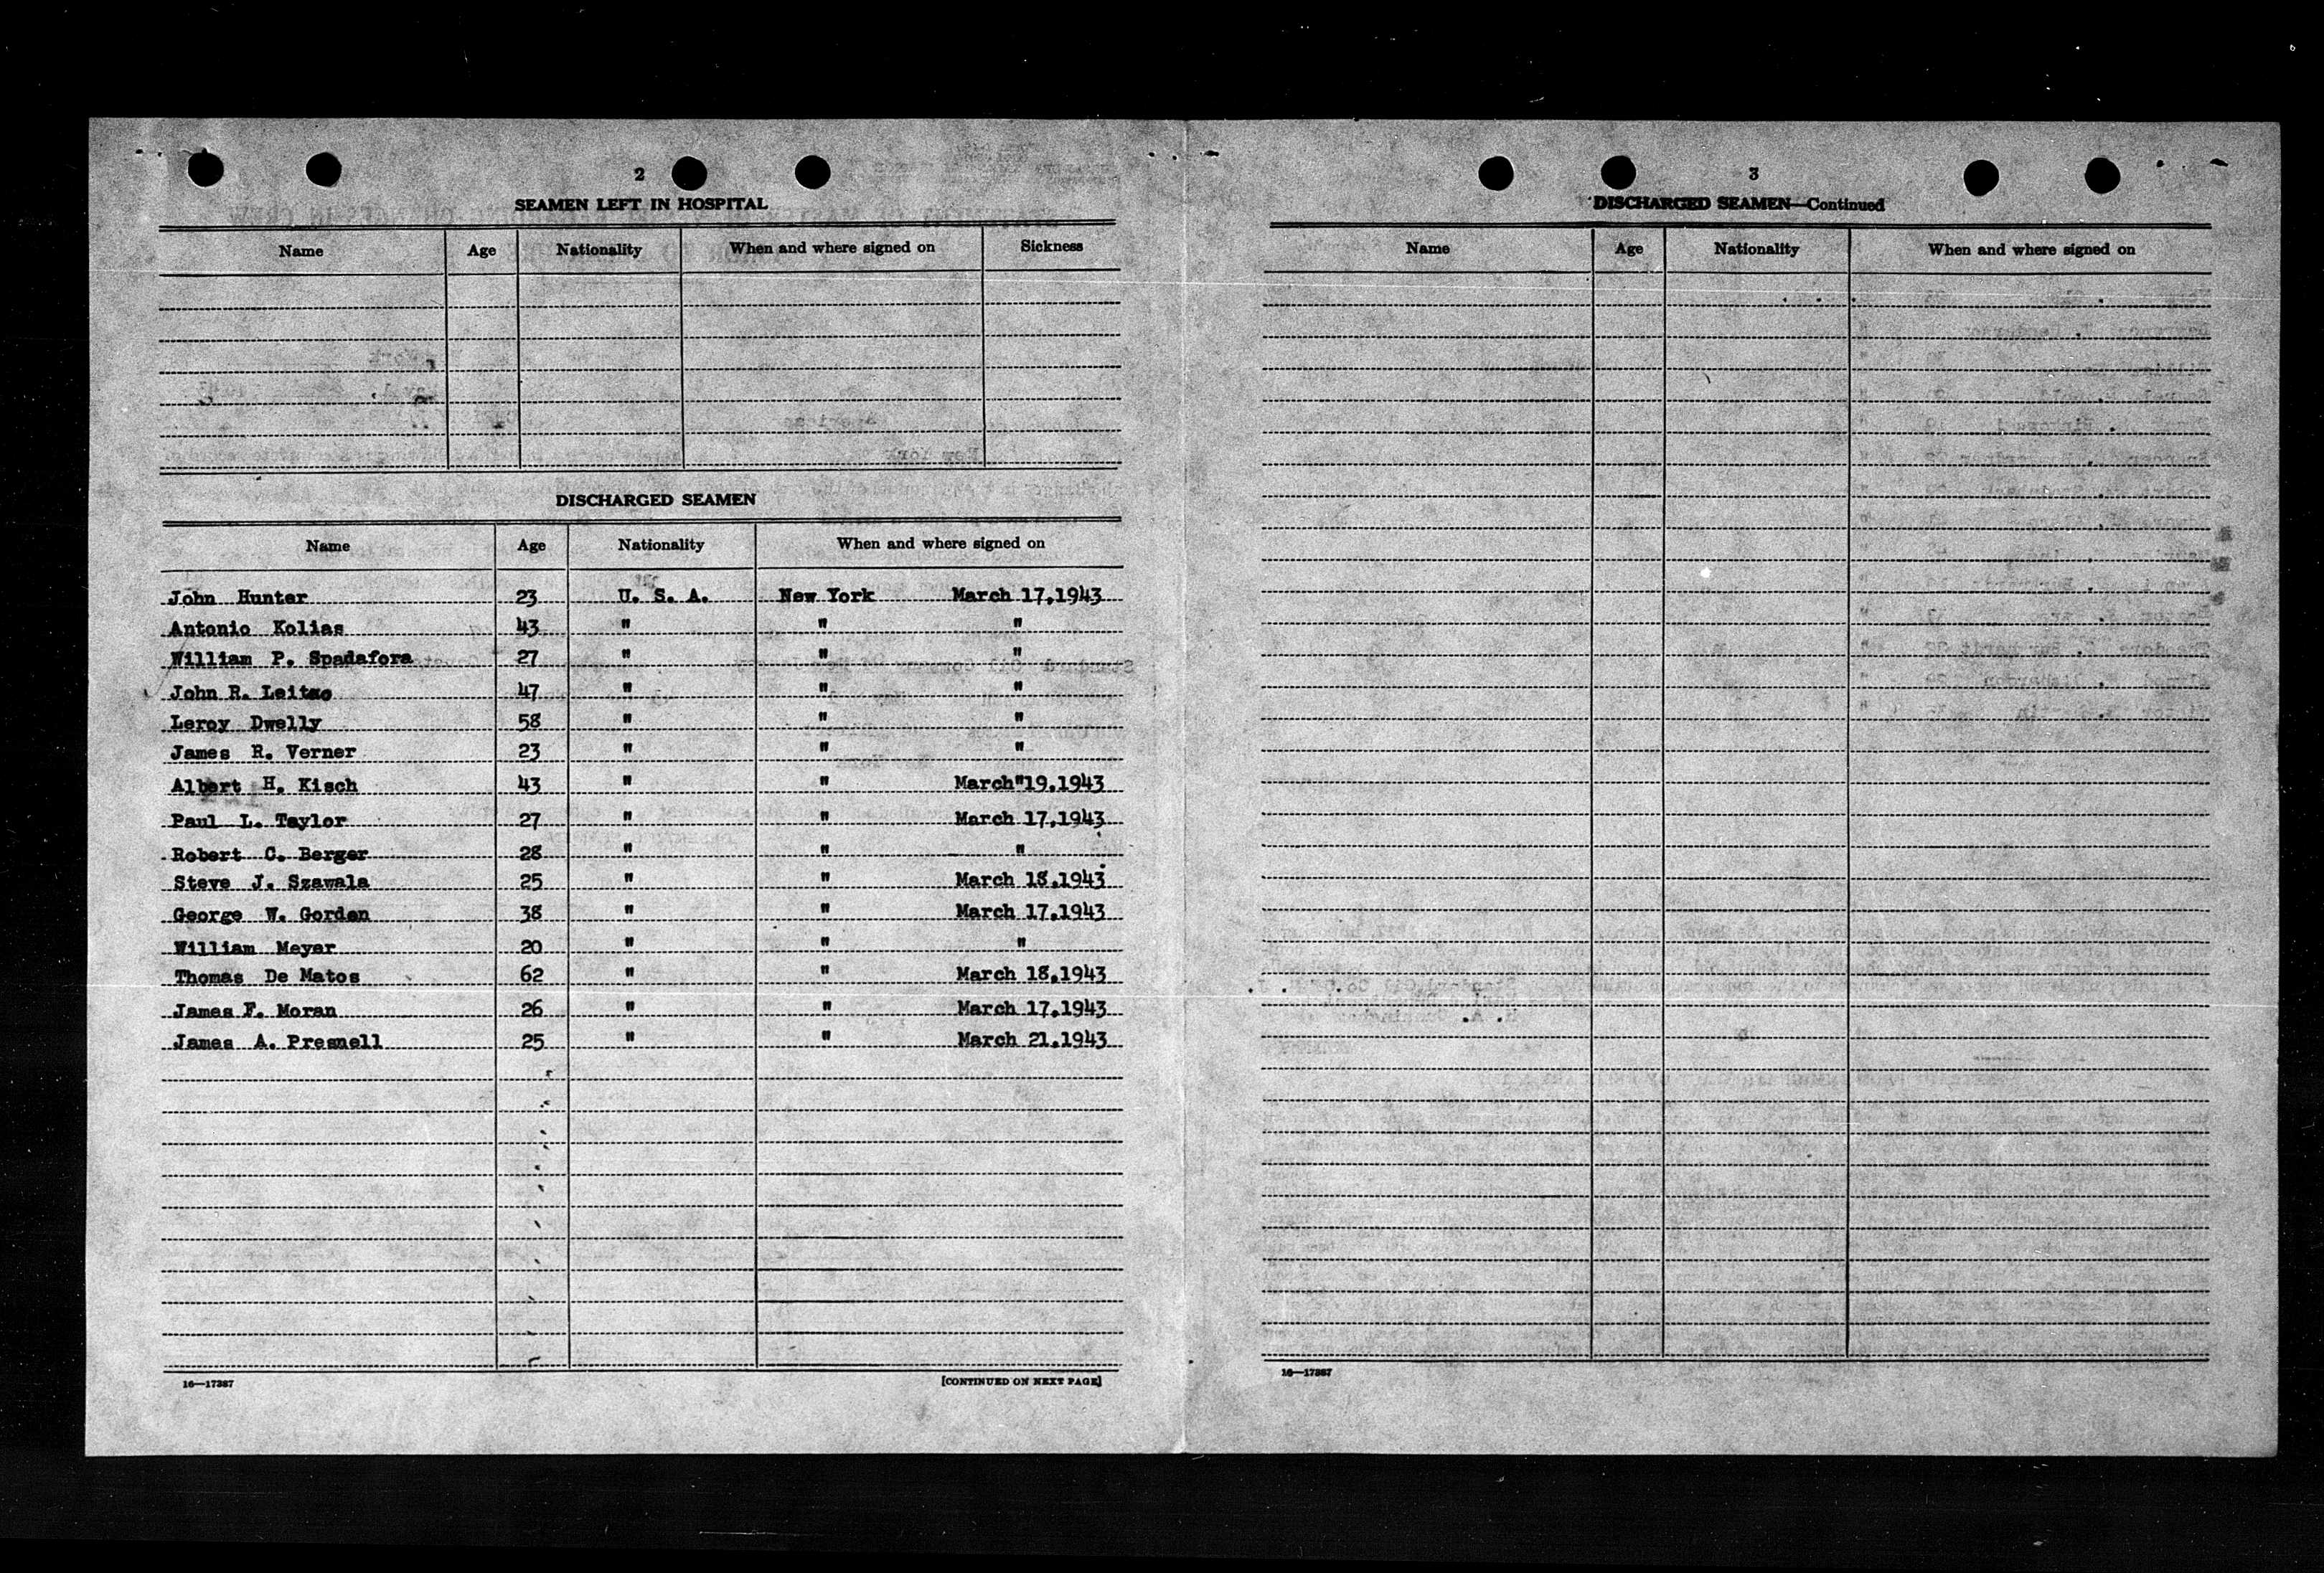 2
SEAMEN LEFT IN HOSPITAL
Name Age Nationality When and where signed on Sickness
DISCHARGED SEAMEN
Name Age Nationality When and where signed on
John Hunter 23 U. S. A. New York March 17,1943
Antonio Kolias 43 " " "
William P. Spadafora 27 " " "
John R. Leitao 47 " " "
Leroy Dwelly 58 " " "
James R. Verner 23 " " "
Albert H. Kisch 43 " " March"19,1943
Paul L. Taylor 27 " " March 17,1943
Robert C. Berger 28 " " "
Steve J. Szawala 25 " " March 18,1943
George W. Gorden 38 " " March 17,1943
William Meyer 20 " " "
Thomas De Matos 62 " " March 18,1943
James F. Moran 26 " " March 17,1943
James A. Presnell 25 " " March 21,1943
16—17387 [CONTINUED ON NEXT PAGE]
3
DISCHARGED SEAMEN—Continued
Name Age Nationality When and where signed on
16—17387